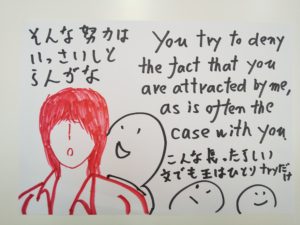 そんな努力は
いっさいしと
らんがな
You try to deny
the fact that you
are attracted by me,
as is often the
case with you.
こんな長ったらしい
文でも王はひとり tryだけ